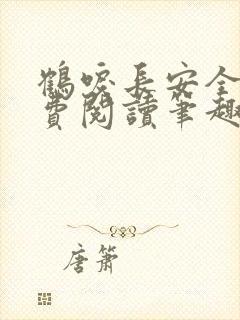 鶴唳長安全
費閱讀筆趣
唐簫